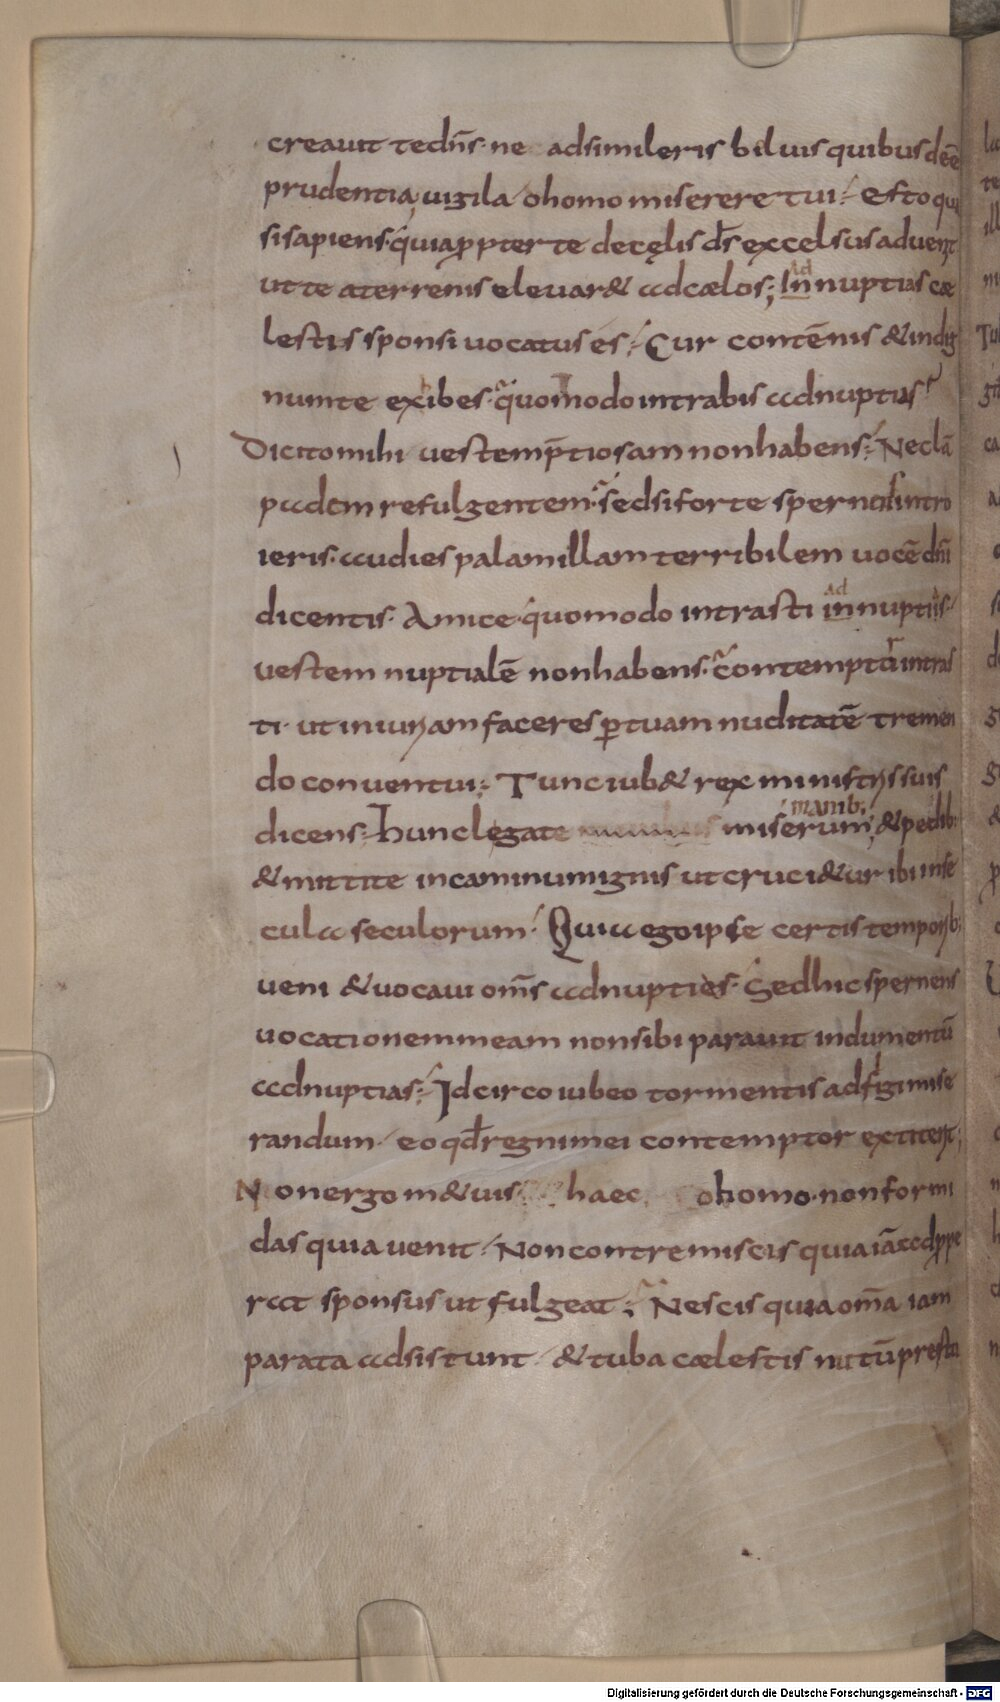 creauit te dn̄s· ne adsimileris biluis quibus deē
prudentia, uigila, o homo miserere tui· Esto qua
si sapiens· quia ꝓpter te de cęlis d̄s excelsus aduenit
ut te a terrenis eleuar& ad cælos; In ad nuptias cæ
lestis sponsi uocatus es; Cur contēnis & indig
num te exibes· quomodo intrabis ad nuptias
Dicito mihi uestem p̄tiosam non habens; Nec lā
padem refulgentem· Sed si forte spernens intro
ieris· audies palam illam terribilem uocē dn̄i
dicentis· Amice· quomodo intrasti in ad nuptiis·
uestem nuptialē non habens· contemptor intras
ti· ut iniuriam faceres ꝑ tuam nuditatē tremen
do conuentui; Tunc iub& rex ministris suis
dicens· Hunc legate miserum manib; & pedib;
& mittite in caminum ignis ut cruci&ur ibi in se
cula seculorum· Quia ego ipse certis temporib;
ueni & uocaui om̄s ad nuptias· Sed hic spernens
uocationem meam non sibi parauit indumentū
ad nuptias; Idcirco iubeo tormentis adfligi mise
randum· eo qd̄ regni mei contemptor extiterit;
Non ergo m&uis haec o homo· non formi
das quia uenit· Non contremiscis quia iā adpꝓpe
rat sponsus ut fulgeat; Nescis quia om̄a iam
parata adsistunt· & tuba cælestis nutū presto
Digitalisierung gefördert durch die Deutsche Forschungsgemeinschaft - DFG